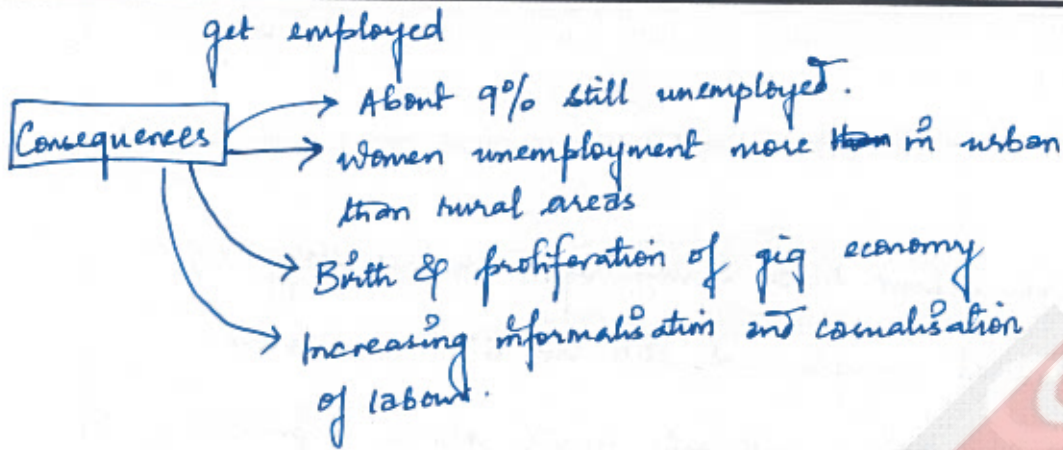 get employed
About 9% still unemployed.
Consequences
women unemployment more in urban
than rural areas
Birth & proliferation of gig economy
Increasing informalisation and casualisation
of labour.